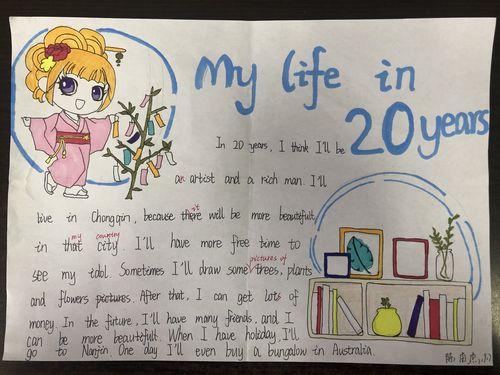 My life in
20 years
In 20 years, I think I'll be
an artist and a rich man. I'll
it
live in Chongqin, because there will be more beautiful
my country
in that city. I'll have more free time to
pictures of
see my idol. Sometimes I'll draw some trees, plants
and flowers pictures. After that, I can get lots of
money. In the future, I'll have many friends, and I
can be more beautiful. When I have holiday, I'll
go to Nanjin One day I'll even buy a bungalow in Australia.